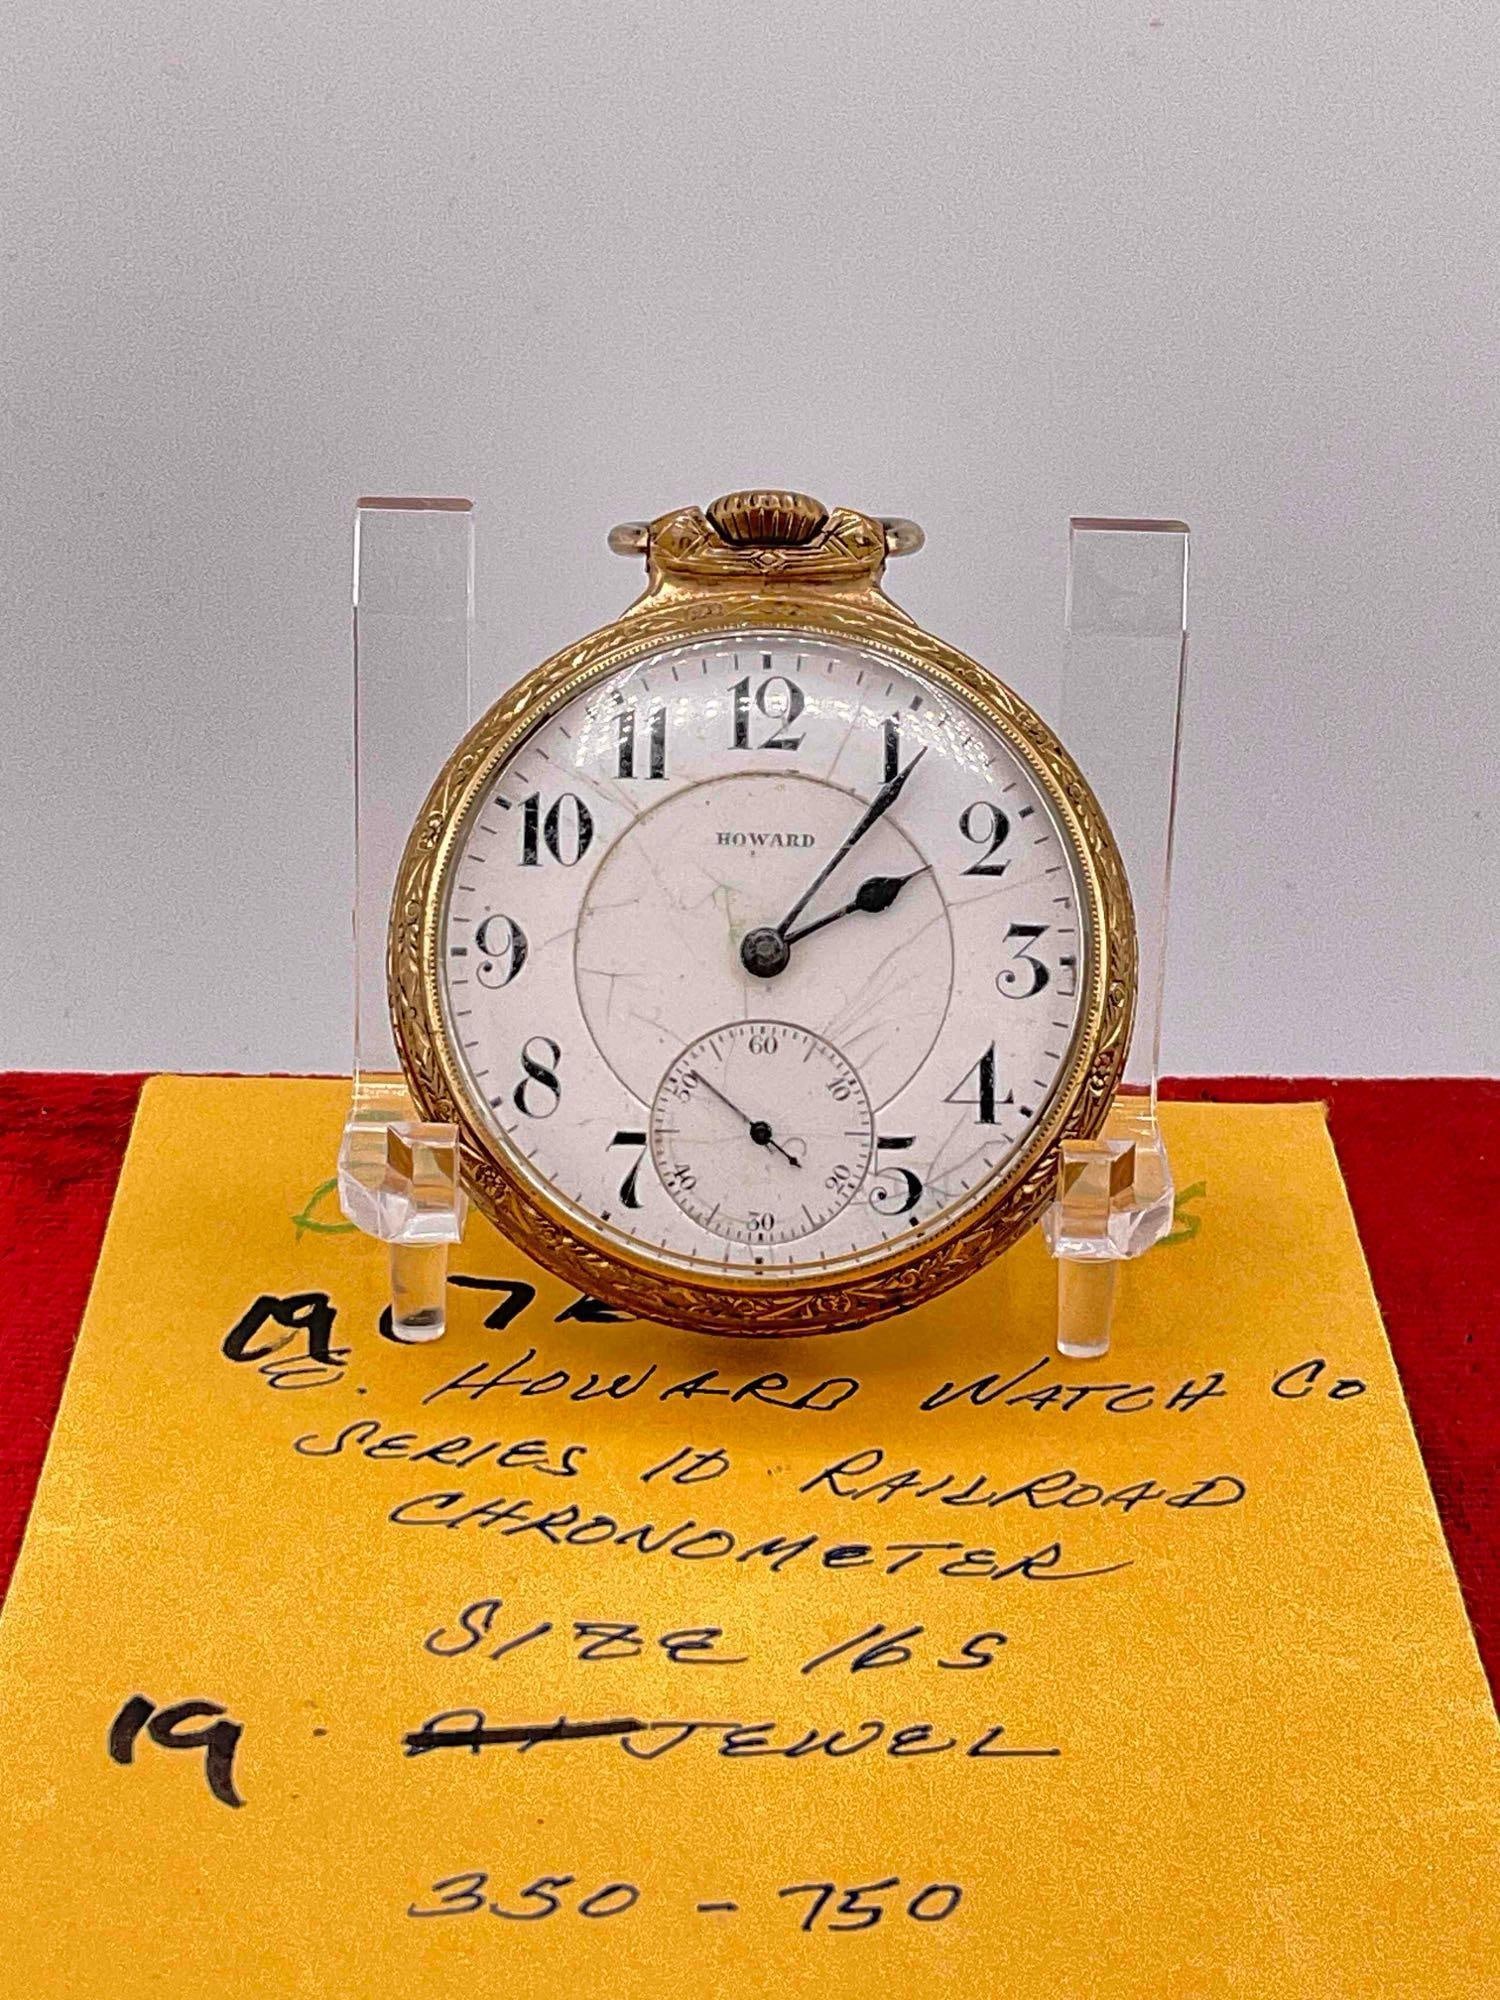 12
11
1
10
HOWARD
2
9
3
60
50
10
8
4
40
20
7
5
30
E. HOWARD WATCH CO
SERIES 10 RAILROAD
CHRONOMETER
SIZE 16S
19 JEWEL
350 - 750